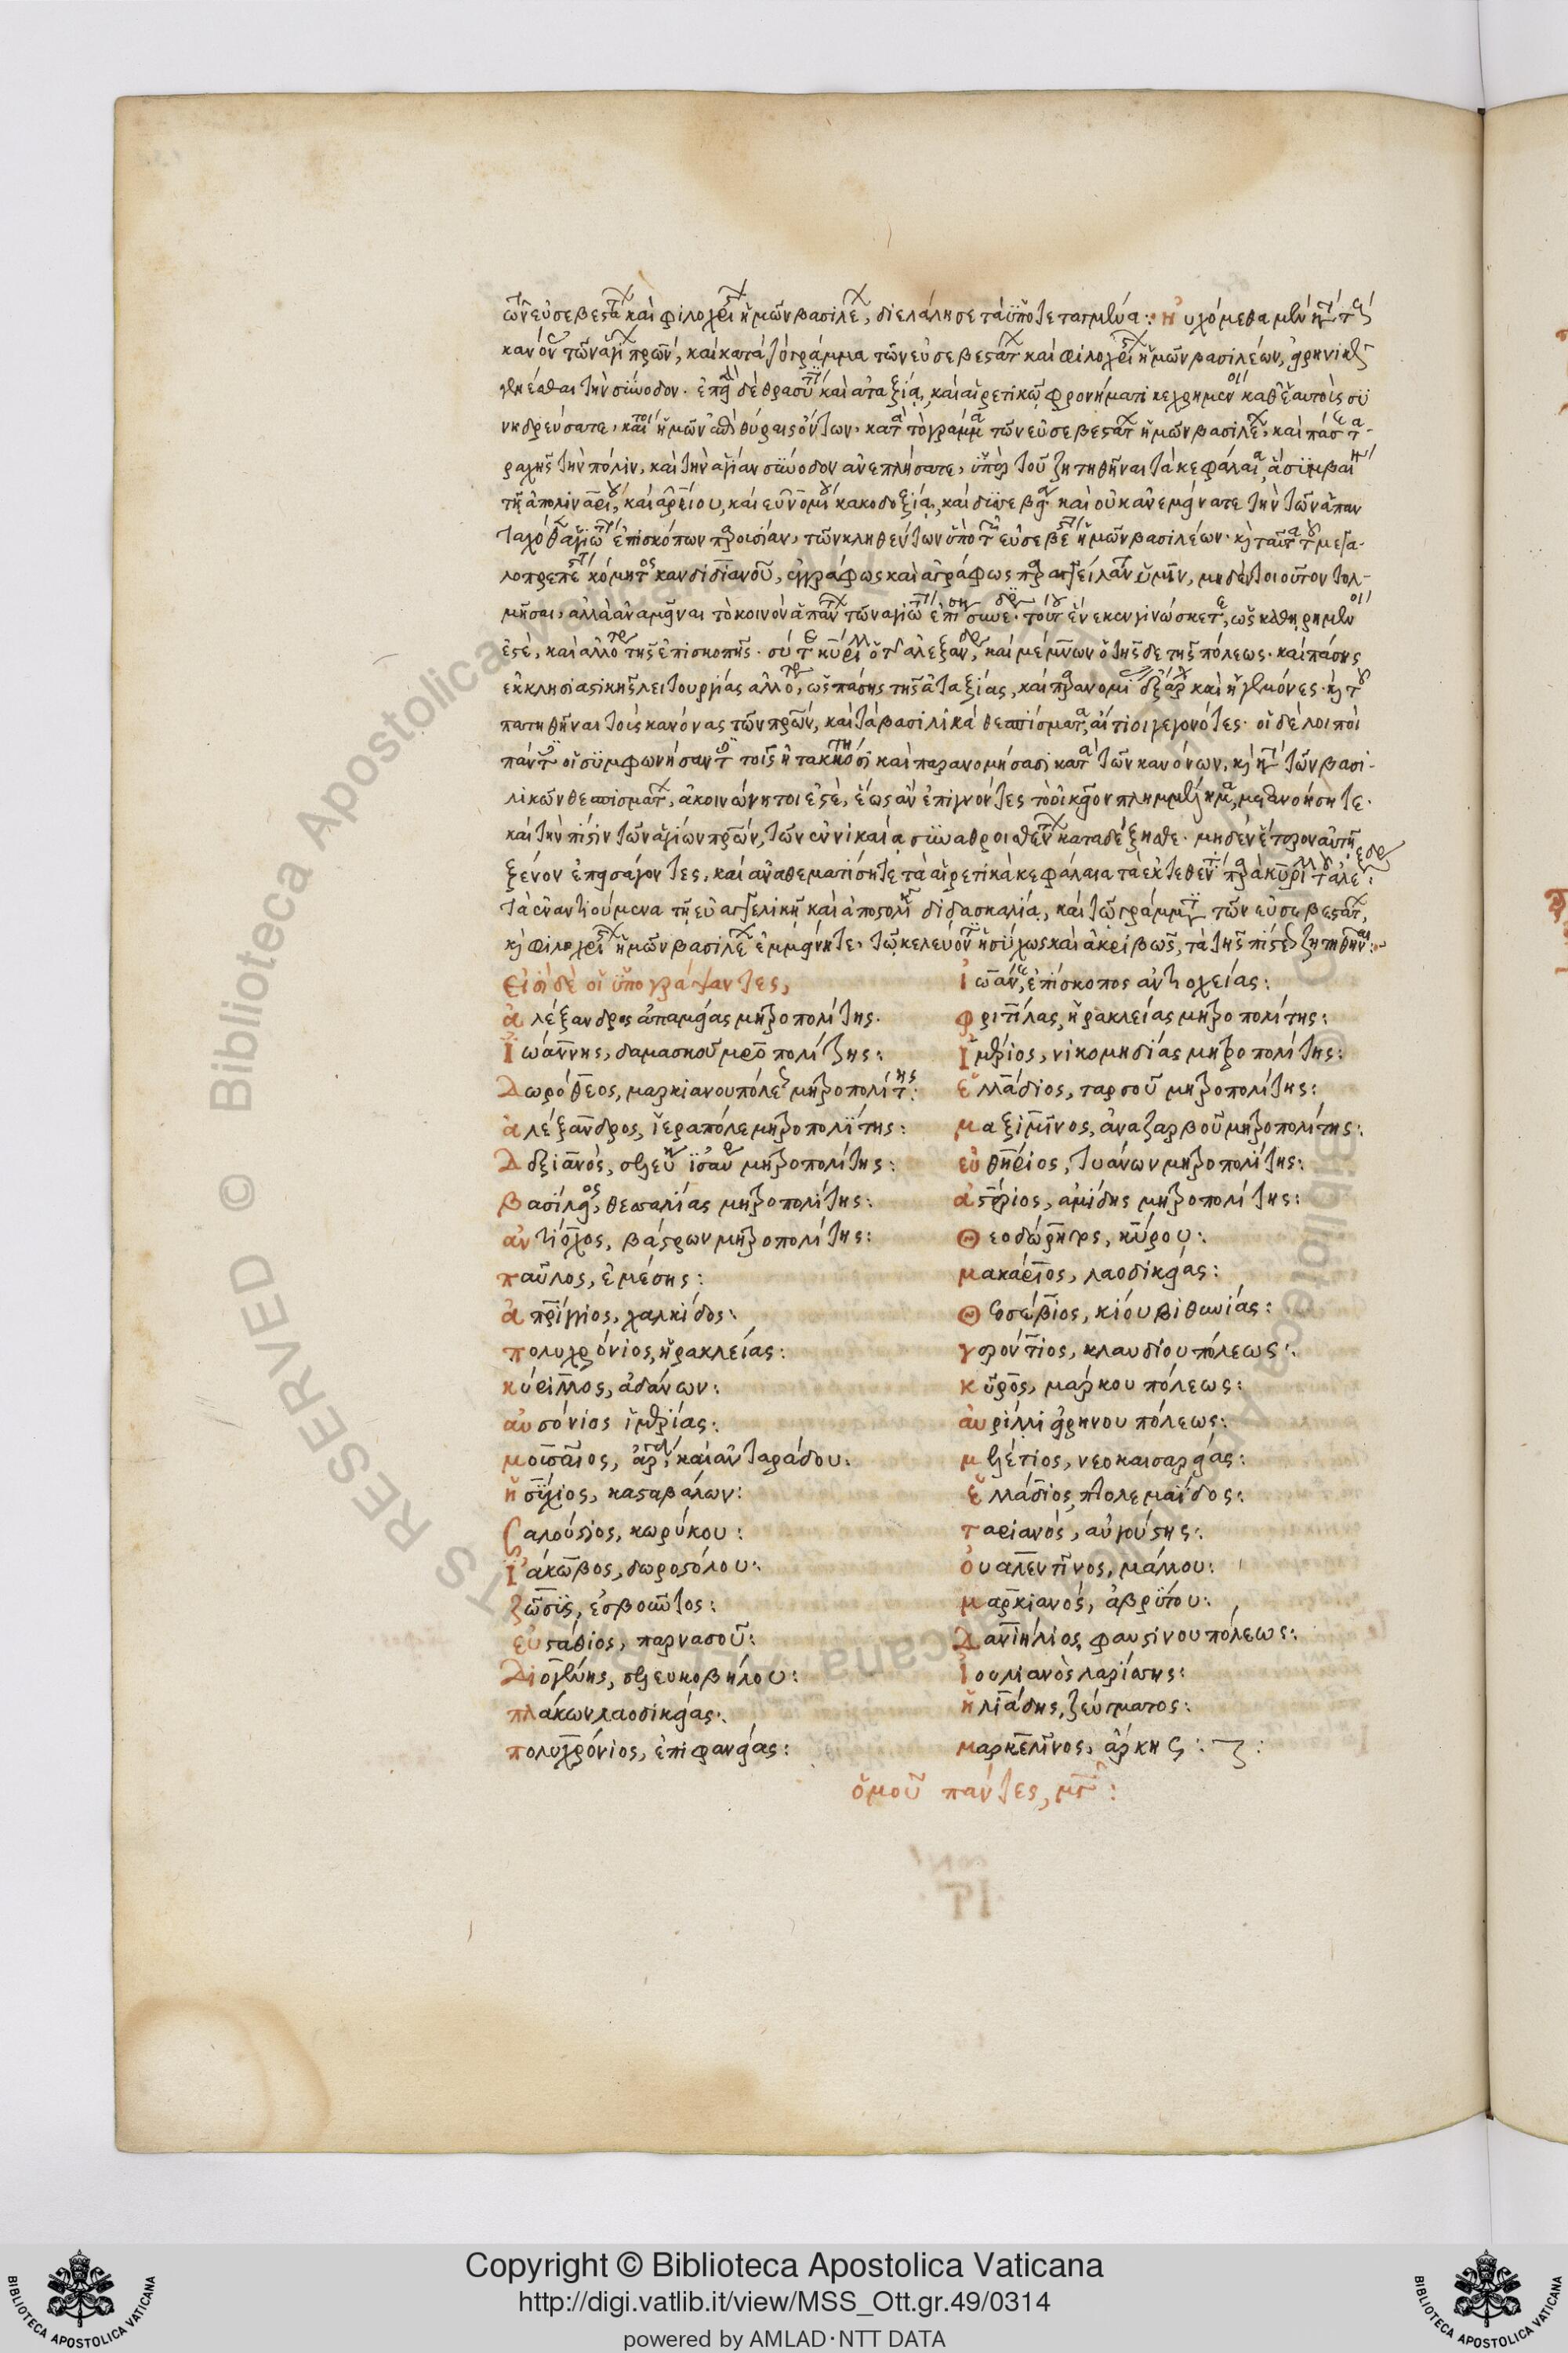 τῶν εὐσεβεστάτ καὶ φιλοχρί ἡμῶν βασιλέ, διελάλησε τὰ ὑποτεταγμένα : ηὐχόμεθα μὲν κατὰ τοὺς
κανόν τῶν ἁγί πρων, καὶ κατὰ τὸ γράμμα τῶν εὐσεβεστάτ καὶ φιλοχρί ἡμῶν βασιλέων, εἰρηνικῶς
γενέσθαι τὴν σύνοδον · ἐπεὶ δὲ θρασύτητι καὶ ἀταξία, καὶ αἱρετικῶ φρονήματι κεχρημένοι καθ' ἑαυτοὺς συ
νηδρεύσατε, καίτοι ἡμῶν ἐπὶ θύραις ὄντων, κατὰ τὸ γράμμα τῶν εὐσεβεστάτ ἡμῶν βασιλέ, καὶ πάσ τα-
ραχῆς τὴν πόλιν, καὶ τὴν ἁγίαν σύνοδον ἀνεπλήσατε, ὑπὲρ τοῦ ζητηθῆναι τὰ κεφάλαια, ἃ συμβαίνει
τῆ ἀπολιναρίου, καὶ ἀρείου, καὶ εὐνομίου κακοδοξία, καὶ δυσσεβεία · καὶ οὐκ ἀνεμείνατε τὴν τῶν ἁπαν
ταχόθεν ἁγίω ἐπισκόπων παρουσίαν, τῶν κληθέντων ὑπὸ τῶν εὐσεβε ἡμῶν βασιλέων · καὶ ταῦτα τοῦ μεγα-
λοπρεπε κόμητος κανδιδιανοῦ, ἐγγράφως καὶ ἀγράφως παραγγείλαντ ὑμῖν, μηδὲν τοιοῦτον τολ-
μῆσαι, ἀλλὰ ἀναμεῖναι τὸ κοινὸν ἁπάντ τῶν ἁγίω ἐπι συνε · τούτου ἕνεκεν γινώσκετε, ὡς καθηρημένοι
ἐστέ, καὶ ἀλλότρ τῆς ἐπισκοπῆς · σύ τε κύριλλ ὁ τ ἀλεξανδρ, καὶ μέμνων ὁ τῆς δε τῆς πόλεως · καὶ πάσης
ἐκκλησιαστικῆς λειτουργίας ἀλλότρ, ὡς πάσης τῆς ἀταξίας, καὶ παρανομί ἔξαρχ καὶ ἡγεμόνες · καὶ τοῦ
πατηθῆναι τοὺς κανόνας τῶν πρων, καὶ τὰ βασιλικὰ θεσπίσματα, αἴτιοι γεγονότες · οἱ δὲ λοιποὶ
λικῶν θεσπισμάτ, ἀκοινώνητοι ἐστέ, ἕως ἂν ἐπιγνόντες τὸ οἰκεῖον πλημμέλημα, μετανοήσητε ·
καὶ τὴν πίστιν τῶν ἁγίων πρων, τῶν ἐν νικαία συναθροισθέντ καταδέξησθε · μηδὲν ἕτερον αὐτῆ
ξένον ἐπεισάγοντες, καὶ ἀναθεματίσητε τὰ αἱρετικὰ κεφάλαια τὰ ἐκτεθέντ παρὰ κυρίλλ τ ἀλεξδρ :
τὰ ἐναντιούμενα τῆ εὐαγγελικῆ καὶ ἀποστολικῆ διδασκαλία, καὶ τῶ γράμματι τῶν εὐσεβεστάτ,
καὶ φιλοχρί ἡμῶν βασιλέ ἐμμείνητε, τῶ κελεύοντι ἡσύχως καὶ ἀκριβῶς, τὰ τῆς πίστεως ζητηθῆναι :
εἰσὶ δὲ οἱ ὑπογράψαντες,
ἀλέξανδρος ἀπαμείας μητροπολίτης.
ἰωάννης, δαμασκοῦ μητροπολίτης :
δωρόθεος, μαρκιανουπόλεως μητροπολίτης :
ἀλέξανδρος, ἱεραπόλε μητροπολίτης :
δεξιανὸς, σελευκ ἰσαυρ μητροπολίτης :
βασίλειος, θεσσαλίας μητροπολίτης :
ἀντίοχος, βόστρων μητροπολίτης :
παῦλος, ἐμέσης :
ἀπρίγγιος, χαλκίδος :
πολυχρόνιος, ἡρακλείας :
κύριλλος, ἀδάνων :
αὐσόνιος ἱμερίας :
μουσαῖος, ἀράδ, καὶ ἀνταράδου.
ἡσύχιος, κασταβάλων :
σαλούστιος, κωρύκου :
ἰάκωβος, δωροστόλου :
ζῶσυς, ἐσβοῦντος :
εὐστάθιος, παρνασοῦ :
διογένης, σελευκοβήλου :
πλάκων λαοδικείας :
πολυχρόνιος, ἐπιφανείας :
ἰωάνης, ἐπίσκοπος ἀντιοχείας :
φριτίλας, ἡρακλείας μητροπολίτης :
ἱμέριος, νικομηδίας μητροπολίτης :
ἐλλάδιος, ταρσοῦ μητροπολίτης :
μαξιμῖνος, ἀναζαρβοῦ μητροπολίτης :
εὐθήριος, τυάνων μητροπολίτης :
ἀστέριος, ἀμίδης μητροπολίτης :
θεοδώρητος, κύρου :
μακάριος, λαοδικείας :
θεοσέβιος, κίου βιθυνίας :
γερόντιος, κλαυδίου πόλεως :
κῦρος, μαρκουπόλεως :
αὐρίλλι εἰρηνουπόλεως :
μελέτιος, νεοκαισαρείας :
ἑλλάδιος πτολεμαΐδος :
ταριανὸς, αὐγούστης :
οὐαλεντῖνος, μάλλου :
μαρκιανός, ἀβρύτου :
δανιήλιος φαυστίνου πόλεως :
ἰουλιανὸς λαρίσσης :
ἡλιάδης, ζεύγματος :
μαρκελῖνος, ἄρκης :
ὁμοῦ πάντες, μγ :
Copyright © Biblioteca Apostolica Vaticana
http://digi.vatlib.it/view/MSS_Ott.gr.49/0314
powered by AMLAD·NTT DATA